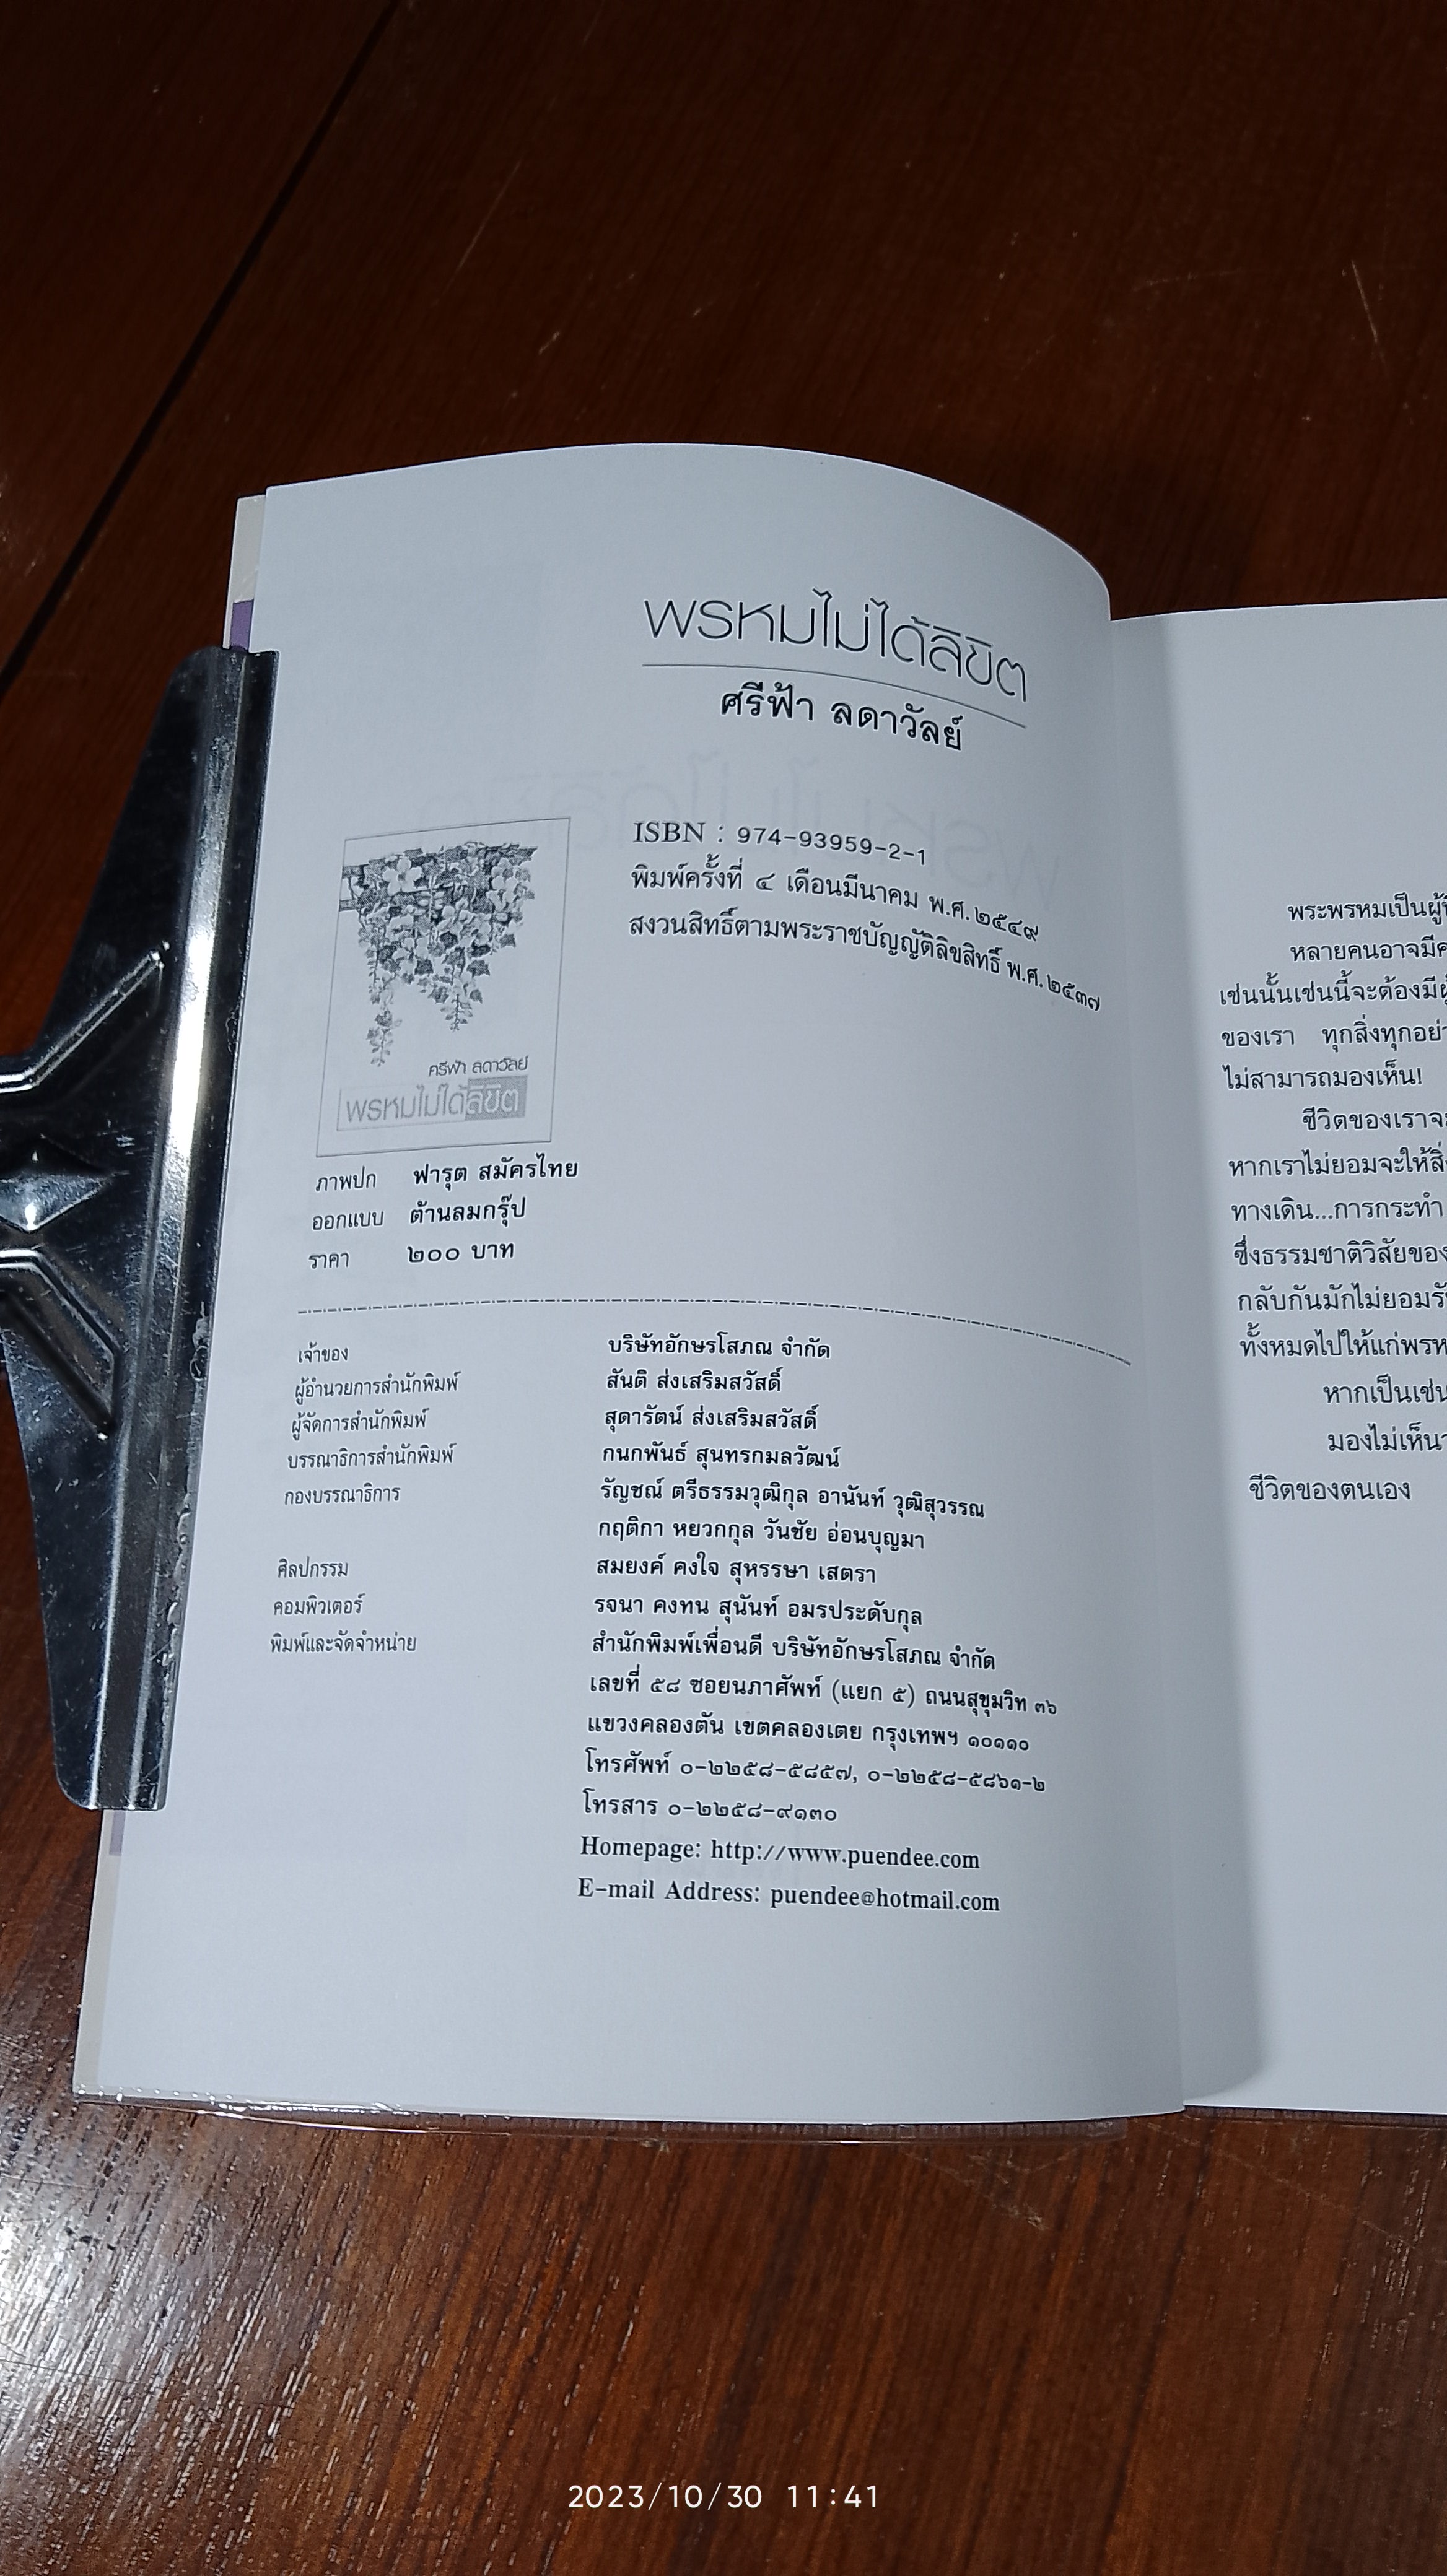 พรหมไม่ได้ลิขิต
ศรีฟ้า ลดาวัลย์
ISBN : 974-93959-2-1
พิมพ์ครั้งที่ ๔ เดือนมีนาคม พ.ศ. ๒๕๔๙
สงวนสิทธิ์ตามพระราชบัญญัติลิขสิทธิ์ พ.ศ. ๒๕๓๗
ศรีฟ้า ลดาวัลย์
พรหมไม่ได้ลิขิต
ภาพปก ฟารุต สมัครไทย
ออกแบบ ต้านลมกรุ๊ป
ราคา ๒๐๐ บาท
เจ้าของ บริษัทอักษรโสภณ จำกัด
ผู้อำนวยการสำนักพิมพ์ สันติ ส่งเสริมสวัสดิ์
ผู้จัดการสำนักพิมพ์ สุดารัตน์ ส่งเสริมสวัสดิ์
บรรณาธิการสำนักพิมพ์ กนกพันธ์ สุนทรกมลวัฒน์
กองบรรณาธิการ รัญชณ์ ตรีธรรมวุฒิกุล อานันท์ วุฒิสุวรรณ
กฤติกา หยวกกุล วันชัย อ่อนบุญมา
ศิลปกรรม สมยงค์ คงใจ สุหรรษา เสตรา
คอมพิวเตอร์ รจนา คงทน สุนันท์ อมรประดับกุล
พิมพ์และจัดจำหน่าย สำนักพิมพ์เพื่อนดี บริษัทอักษรโสภณ จำกัด
เลขที่ ๕๘ ซอยนภาศัพท์ (แยก ๕) ถนนสุขุมวิท ๓๖
แขวงคลองตัน เขตคลองเตย กรุงเทพฯ ๑๐๑๑๐
โทรศัพท์ ๐-๒๒๕๘-๕๘๕๗, ๐-๒๒๕๘-๕๘๖๑-๒
โทรสาร ๐-๒๒๕๘-๙๑๓๐
Homepage: http://www.puendee.com
E-mail Address: puendee@hotmail.com
พระพรหมเป็นผู้
หลายคนอาจมี
เช่นนั้นเช่นนี้จะต้องมี
ของเรา ทุกสิ่งทุกอย่า
ไม่สามารถมองเห็น!
ชีวิตของเราจะ
หากเราไม่ยอมจะให้สิ่
ทางเดิน...การกระทำ
ซึ่งธรรมชาติวิสัยของ
กลับกันมักไม่ยอมรั
ทั้งหมดไปให้แก่พรห
หากเป็นเช่น
มองไม่เห็น
ชีวิตของตนเอง
2023/10/30 11:41